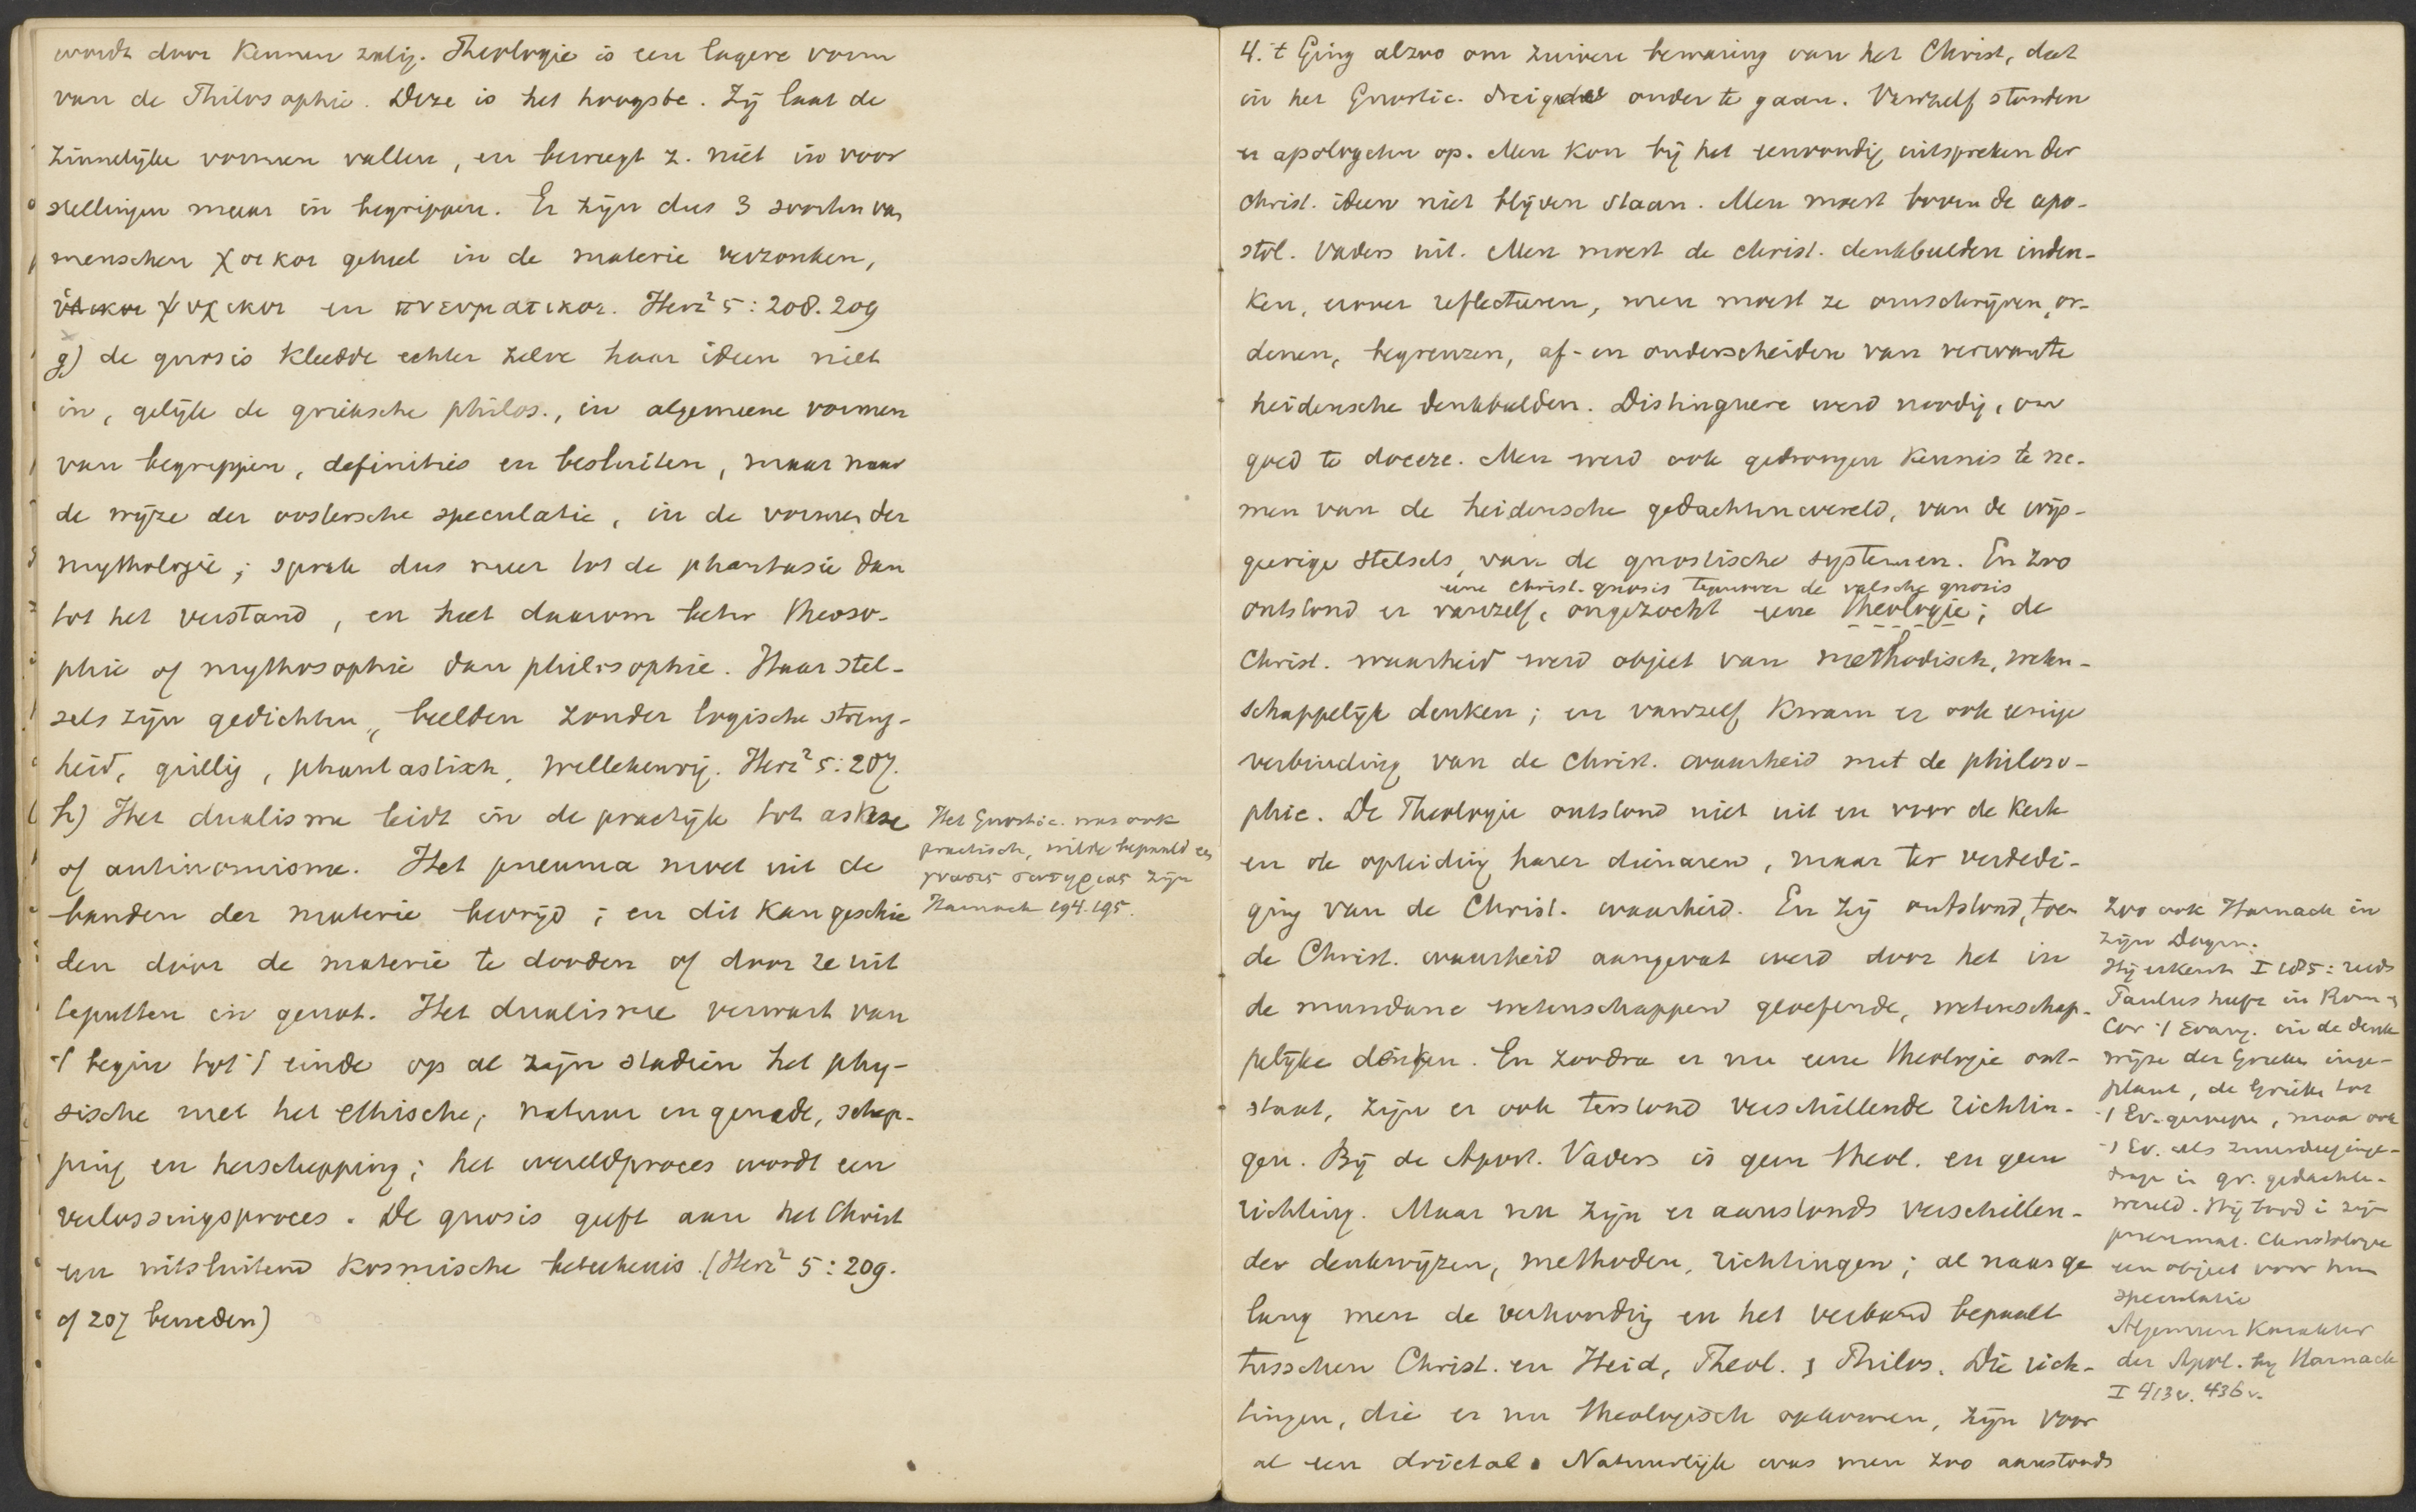 wordt door kennen zalig. Theologie is een lagere vorm
van de Philosophie. Deze is het hoogste. Zij laat de
zinnelijke vormen vallen, en beweegt z. niet in voor
stellingen maar in begrippen. Er zijn dus 3 soorten van
menschen χοικοι geheel in de materie verzonken,
ὑλικοι ψυχικοι en πνευματικοι. Herz² 5: 208. 209
g) de gnosis kleedde echter zelve haar ideen niet
in, gelijk de grieksche philos., in algemeene vormen
van begrippen, definities en besluiten, maar naar
de wijze der oostersche speculatie, in de vormen der
mythologie; sprak dus meer tot de phantasie dan
tot het verstand, en heet daarom beter theoso-
phie of mythosophie dan philosophie. Haar stel-
sels zijn gedichten, beelden zonder logische streng-
heid, grillig, phantastisch, willekeurig. Herz² 5: 207.
h) Het dualisme leidt in de practijk tot askese
of antinomisme. Het pneuma moet uit de
banden der materie bevrijd; en dit kan geschie
den door de materie te dooden of door ze uit
teputten in genot. Het dualisme verwart van
't begin tot 't einde op al zijn stadien het phy-
sische met het ethische, natuur en genade, schep-
ping en herschepping; het wereldproces wordt een
verlossingsproces. De gnosis geeft aan het Christ
een uitsluitend kosmische beteekenis. (Herz² 5: 209.
of 207 beneden)
Het Gnostic. was ook
practisch, wilde bepaald een
γνωσις σωτηριας zijn
Harnack 194. 195.
4. 't Ging alzoo om zuivere bewaring van het Christ, dat
in het Gnostic. dreigde onder te gaan. Vanzelf stonden
er apologeten op. Men kon bij het eenvoudig uitspreken der
christ. ideen niet blijven staan. Men moest boven de apo-
stol. Vaders uit. Men moest de christ. denkbeelden inden-
ken, erover reflecteeren, men moest ze omschrijven, or-
denen, begrenzen, af- en onderscheiden van verwante
heidensche denkbeelden. Distinguere werd noodig, om
goed te docere. Men werd ook gedrongen kennis te ne-
men van de heidensche gedachtenwereld, van de wijs-
geerige stelsels, van de gnostische systemen. En zoo
eene christ. gnosis tegenover de valsche gnosis
ontstond er vanzelf, ongezocht eene theologie; de
Christ. waarheid werd object van methodisch, weten-
schappelijk denken; en vanzelf kwam er ook eenige
verbinding van de Christ. waarheid met de philoso-
phie. De Theologie ontstond niet uit en voor de kerk
en de opleiding harer dienaren, maar ter verdedi-
ging van de Christ. waarheid. En zij ontstond, toen
de Christ. waarheid aangevat werd door het in
de mundane wetenschappen geoefende, wetenschap-
pelijke denken. En zoodra er nu eene theologie ont-
staat, zijn er ook terstond verschillende richtin-
gen. Bij de Apost. Vaders is geen theol. en geen
richting. Maar nu zijn er aanstonds verschillen-
der denkwijzen, methoden, richtingen; al naar ge
lang men de verhouding en het verband bepaalt
tusschen Christ. en Heid, Theol. & Philos. Die rich-
tingen, die er nu theologisch opkomen, zijn voor
al een drietal. Natuurlijk was men zoo aanstonds
Zoo ook Harnack in
zijn Dogm.
Hij erkent I 185: reeds
Paulus heeft in Rom en
Cor 't Evang. in de denk
wijze der Grieken inge-
plant, de Grieken tot
't Ev. geroepen, maar ook
't Ev. als
in gr. gedachte-
wereld. Hij bood in zijn
pneumat. Christologie
een object voor hun
speculatie
Algemeen karakter
der Apol. by Harnack
I 413 v. 436 v.